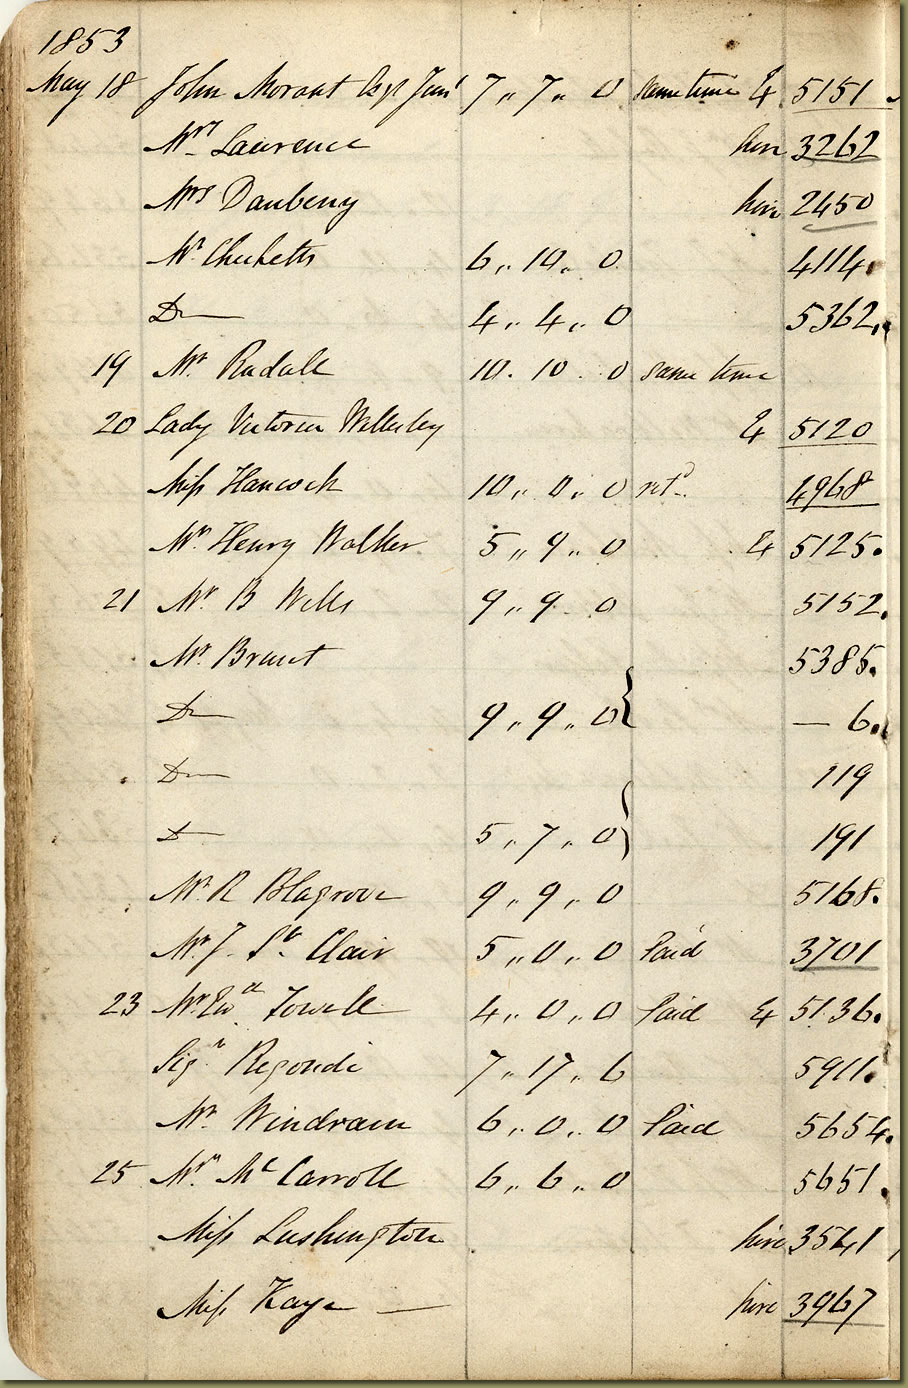 1853
May 18 John Morant Esqr Junr 7 " 7 " 0 same time & 5151
Mrs Lawrence hire 3262
Mrs Daubeny hire 2450
Mr Checketts 6 " 10 " 0 4114.
Do 4 " 4 " 0 5362.
19 Mr Rudall 10 . 10 . 0 same time
20 Lady Victoria Wellesley & 5120
Miss Hancock 10 " 0 " 0 retd 4968
Mr Henry Walker 5 " 9 " 0 & 5125.
21 Mr B Wells 9 " 9 . 0 5152.
Mr Braut 5385.
Do 9 " 9 " 0 } — 6.
Do 119
Do 5 " 7 " 0 } 191
Mr R Blagrove 9 " 9 " 0 5168.
Mr J. St. Clair 5 " 0 " 0 Paid 3701
23 Mr Edwd Towell 4 " 0 " 0 Paid & 5136.
Sigr Regondi 7 " 17 " 6 5911.
Mr Windram 6 " 0 " 0 Paid 5654.
25 Mrs Mc Carroll 6 " 6 " 0 5651.
Miss Lushington hire 3541
Miss Kaye — hire 3967